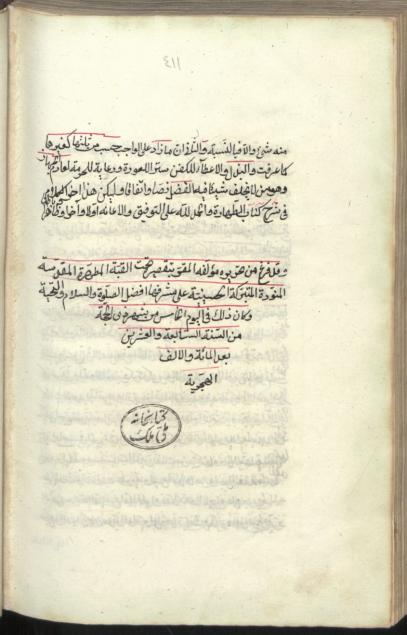 ٤١١
منه شئ والا فبالنسبة والثلاثان ما زاد على الواجب حسب من ثلثها كغيرها
كما عرفت والبذل والاعطاء للكفن ستر العورة ورعاية للحرمة
وهو من لم يخلف شيئا فيه الفضل نصا واتفاقا وليكن هذا اخر الكلام
في شرح كتاب الطهارة والحمد لله على التوفيق والاعانة اولا واخرا
وقد فرغ من تحريره مؤلفه المقر بتقصيره تحت القبة المطهرة المقدسة
المنورة المتبركة الحسينية على مشرفها افضل الصلوة والسلام والتحية
وكان ذلك في اليوم الخامس من شهر ذى الحجة
من السنة السابعة والعشرين
بعد المائة والالف
الهجرية
كتابخانه
ملى ملك